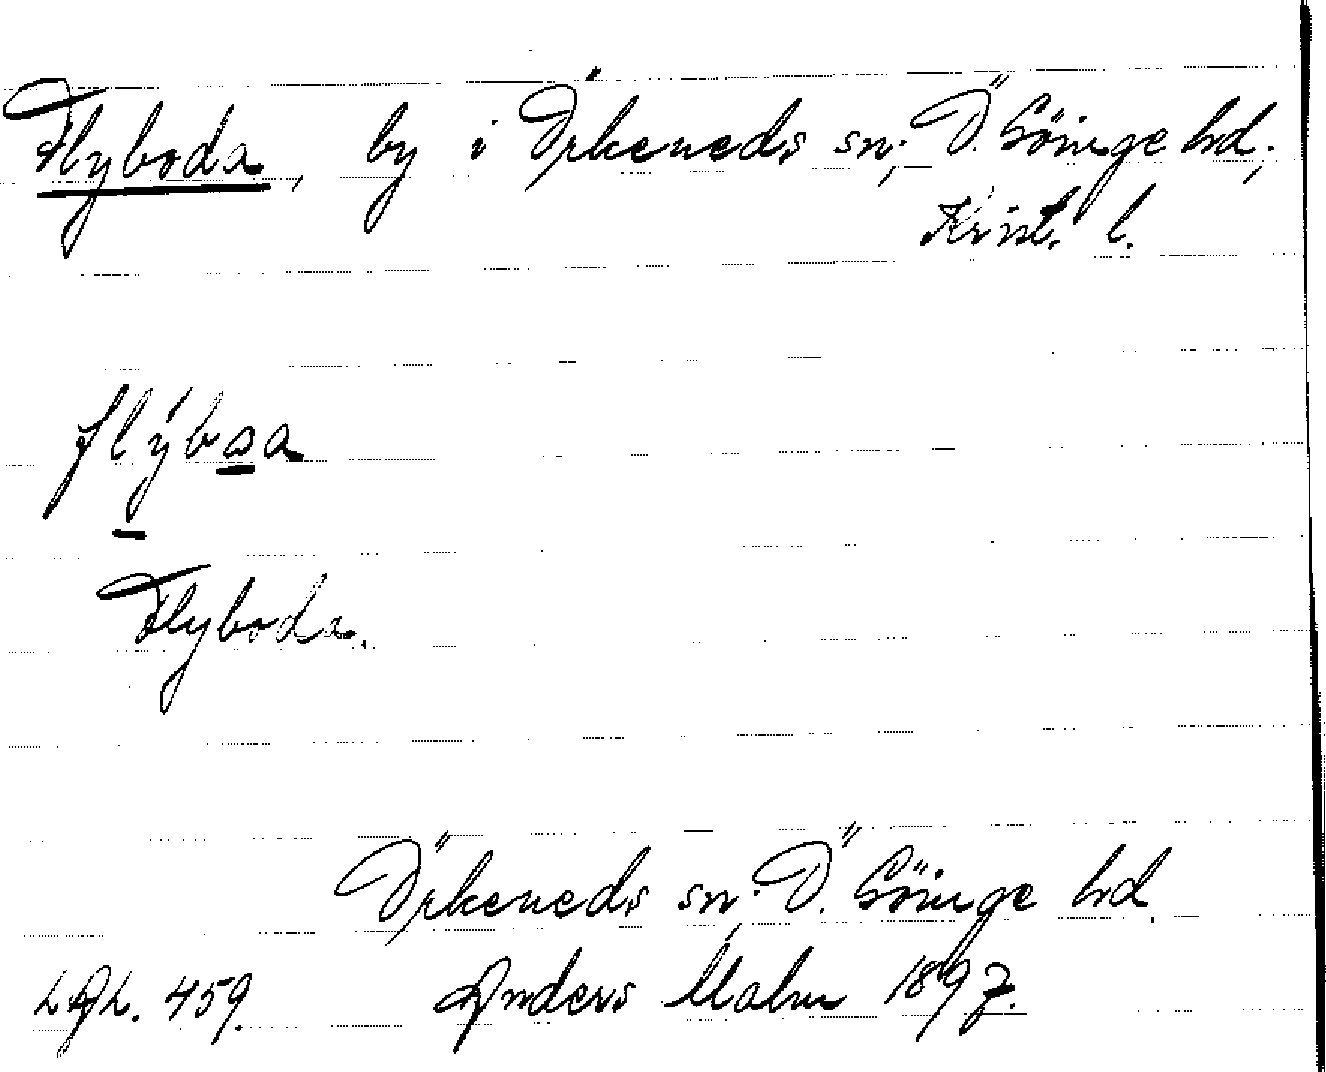 Flyboda, by i Örkeneds sn, Ö. Göinge hd,
Krist. l.
flýbɷa
Flyboda.
Örkeneds sn, Ö. Göinge hd.
LAL. 459. Anders Malm 1897.